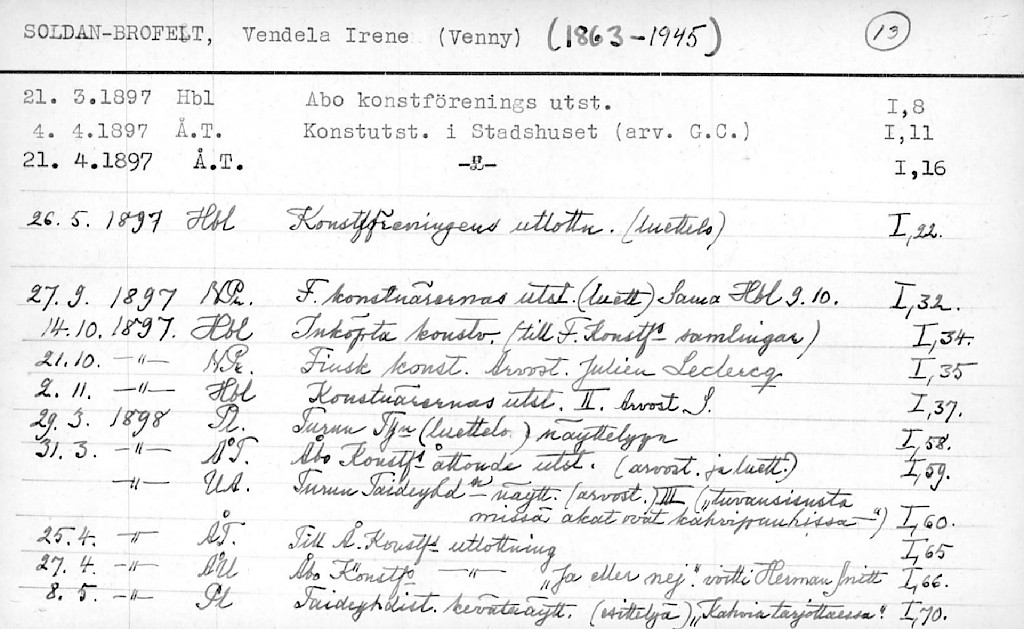 SOLDAN-BROFELT, Vendela Irene (Venny) (1863-1945) 13
21. 3.1897 Hbl Abo konstförenings utst. I,8
4. 4.1897 Å.T. Konstutst. i Stadshuset (arv. G.C.) I,11
21. 4.1897 Å.T. -"- I,16
26. 5. 1897 Hbl Konstföreningens utlottn. (luettelo) I,22.
27. 9. 1897 NPr. F. konstnärernas utst. (luett) Sama Hbl 9.10. I,32.
14.10. 1897. Hbl Inköpta konstv. (till F. Konstfs samlingar) I,34.
21.10. -"- NPr. Finsk konst. Arvost. Julien Leclercq I,35
2. 11. -"- Hbl Konstnärernas utst. II. Arvost S. I,37.
29. 3. 1898 Pl. Turun Tyn (luettelo) näyttelyyn I,58.
31. 3. -"- ÅT. Åbo Konstfs åttonde utst. (arvost. ja luett.) I,59.
-"- UA. Turun Taideyhdn näytt. (arvost.) III („tuvansisusta
missä akat ovat kahvipuuhissa-") I,60.
25.4. -"- ÅT. Till Å. Konstfs utlottning I,65
27.4. -"- ÅU Åbo Konstfs -"- „Ja eller nej". voitti Herman I,66.
8.5. -"- Pl Taideyhdist. kevätnäytt. (esittelyä) „Kahvia tarjottaessa". I,70.